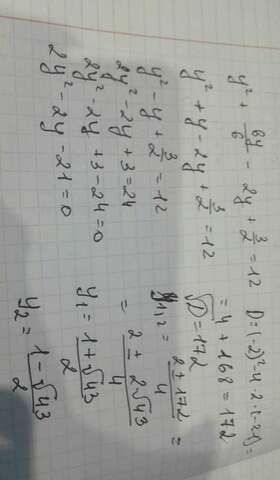 y² + 6y/6 - 2y + 3/2 = 12
y² + y - 2y + 3/2 = 12
y² - y + 3/2 = 12
2y² - 2y + 3 = 24
2y² - 2y + 3 - 24 = 0
2y² - 2y - 21 = 0
D = (-2)² - 4 · 2 · (-21) =
= 4 + 168 = 172
√D = 172
y1,2 = (2 ± 172)/4 =
= (2 ± 2√43)/4
y₁ = (1 + √43)/2
y₂ = (1 - √43)/2